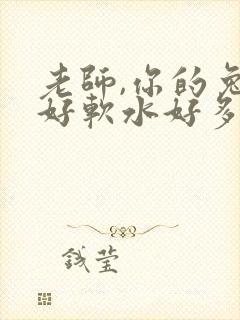 老師,你的兔
好軟水好多
錢瑩